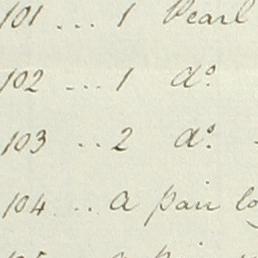 101 ... 1 Pearl
102 ... 1 do.
103 .. 2 do.
104 ... A pair
105